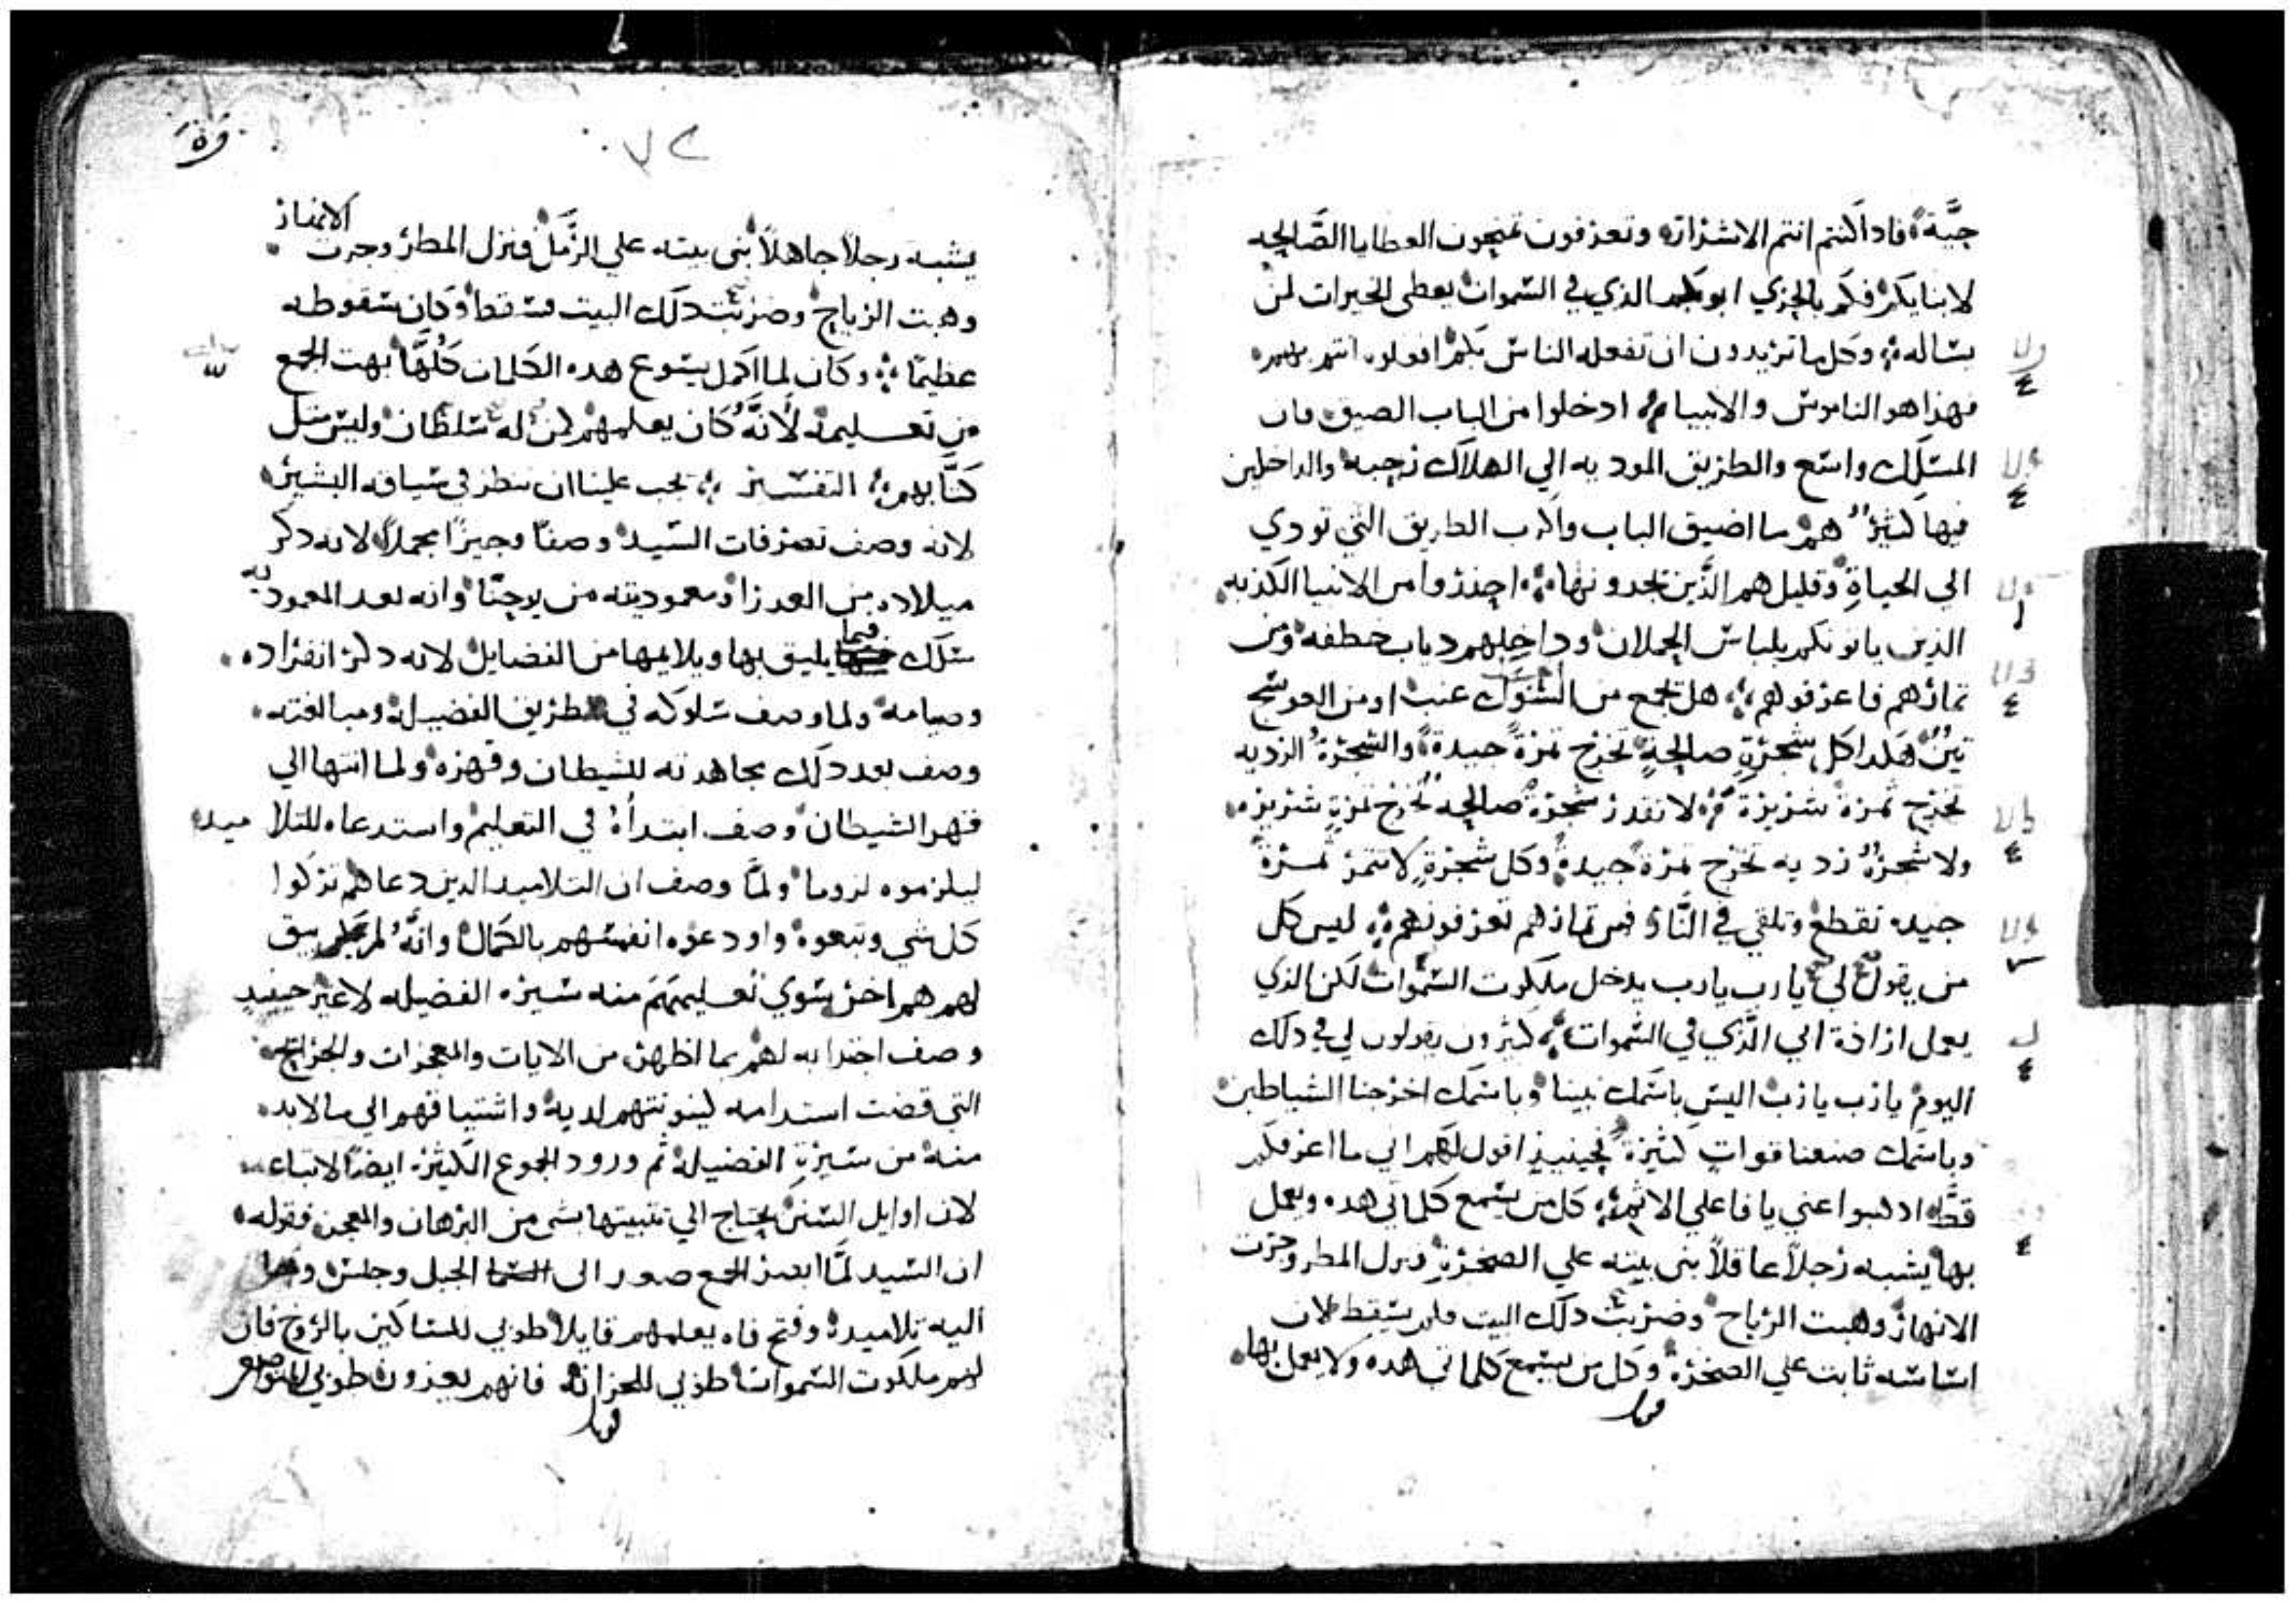 حيَّة فادا كنتم انتم الاشرار وتعرفون تمنحون العطايا الصَّالحه
لابنايكم فكم بالحري ابوكم الذي في السموات يعطي الخيرات لمن
يساله وكل ما تريدون ان تفعله الناس بكم افعلوه انتم بهم
فهدا هو الناموس والانبيا ادخلوا من الباب الضيق فان
المسلك واسع والطريق الموديه الي الهلاك رحبه والداخلين
فيها كثير هم ما اضيق الباب واكرب الطريق التي تودي
الي الحياة وقليل هم الَّذين يجدونها احذروا من الانبيا الكذبه
الذين ياتونكم بلباس الحملان وداخلهم دياب خطفه ومن
تمارهم فاعرفوهم هل يجمع من الشوك عنب او من العوسج
تين هكدا كل شجرةٍ صالحةٍ تخرج تمرةً جيدةً والشجرةُ الرديه
تخرج ثمرة شريرة لا تقدر شجرة صالحه تخرج تمرةٍ شريره
ولا شجرة رديه تخرج تمرة جيدة وكل شجرةٍ لا تتمر تمرة
جيده تقطع وتلقي في النَّار فمن تمارهم تعرفونهم ليس كل
من يقول لي يا رب يا رب يدخل ملكوت السموات لكن الذي
يعمل ارادة ابي الَّذي في السموات كثيرون يقولون لي في دلك
اليوم يا رب يا رب اليس باسمك تنبينا وباسمك اخرجنا الشياطين
وباسمك صنعنا قواتٍ كثيرةً فحينيذٍ اقول لهم اني ما اعرفكم
قطُّ ادهبوا عني يا فاعلي الاثم كل من يسمع كلماتي هده ويعمل
بها يشبه رجلاً عاقلاً بنى بيته علي الصخرةِ فنزل المطر وجرت
الانهار وهبت الرياح وضربت دلك البيت فلم يسقط لان
اساسه ثابت علي الصخرة وكل من يسمع كلماتي هده ولا يعمل بها
يشبه رجلاً جاهلاً بنى بيته علي الرَّمل فنزل المطر وجرت الانهار
وهبت الرياح وضربت دلك البيت فسقط وكان سقوطه
عظيمًا وكان لما اكمل يسوع هده الكلمات كُلَّها بهت الجمع
من تعليمه لأنَّهُ كان يعلمهم كمن له سلطان وليس مثل
كتَّابهم التفسير يجب علينا ان ننظر في سياقه البشير
لانه وصف تصرفات السيد وصفًا وجيزًا مجملاً لانه دكر
ميلاده من العدرا ومعموديته من يوحنَّا وانه بعد المعموديه
سلك فيما يليق بها ويلايمها من الفضايل لانه دكر انفراده
وصيامه ولما وصف سلوكه في طريق الفضيلة ومبالغته
وصف بعد دلك مجاهدته للشيطان وقهره ولما انتها الي
قهر الشيطان وصف ابتدأه في التعليم واستدعاه للتلاميده
ليلزموه لزوما ولمَّا وصف ان التلاميد الدين دعاهم تركوا
كل شي وتبعوه واودعوه انفسهم بالكمال وانَّهُ لم يبق
لهم هم اخر سوي تعليمهم منه سيره الفضيله لاغير حينيد
وصف اجترابه لهم بما اظهر من الايات والمعجزات والجرايح
التي قضت استدامه كينونتهم لديه واشتياقهم الي ما لابد
منه من سيرةِ الفضيلة ثم ورود الجموع الكثيره ايضًا لاتباعه
لان اوايل السنن يحتاج الي تثبيتها بشي من البرهان والمعجز فقوله
ان السيد لمَّا ابصر الجمع صعد الى الجبل وجلس ودنا
اليه تلاميده وفتح فاه يعلمهم قايلا طوبي للمساكين بالروح فان
لهم ملكوت السموات طوبي للحزانا فانهم يعزون طوبي للمتواضعين